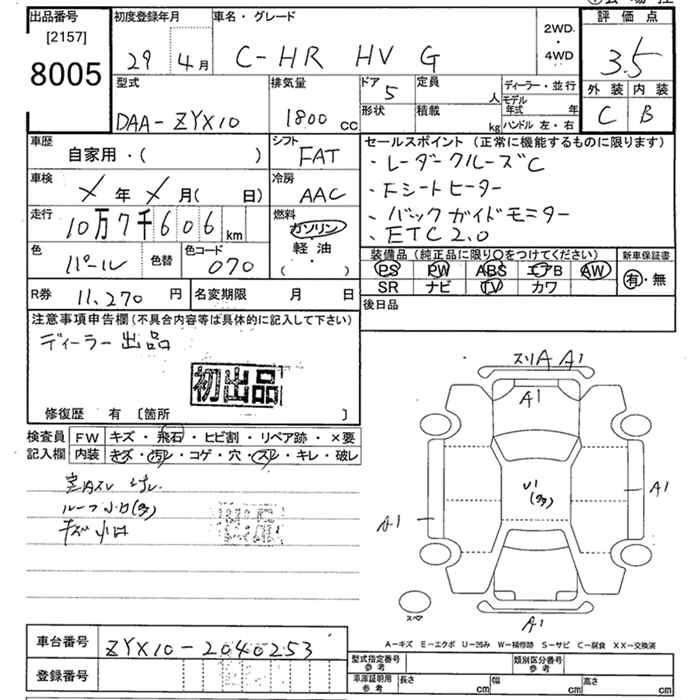 出品番号
[2157]
8005
初度登録年月
29 4月
車名・グレード
C-HR HV G
2WD
・
4WD
評価点
3.5
外装 内装
C B
型式
DAA-ZYX10
排気量
1800 cc
ドア 5
形状
定員 人
積載 kg
ディーラー・並行
モデル年式 年
ハンドル 左・右
車歴
自家用・( )
シフト
FAT
車検
メ年 メ月( 日)
冷房
AAC
走行
10万7千606 km
燃料
ガソリン
・
軽油
( ・ )
色
パール
色替
色コード
070
セールスポイント(正常に機能するものに限ります)
・レーダークルーズC
・Fシートヒーター
・バックガイドモニター
・ETC2.0
装備品(純正品に限り○をつけてください)
PS PW ABS エアB AW
SR ナビ TV カワ
新車保証書
有・無
R券 11,270 円
名変期限 月 日
後日品
注意事項申告欄(不具合内容等は具体的に記入して下さい)
ディーラー出品
初出品
修復歴 有 [箇所 ]
検査員記入欄
FW キズ・飛石・ヒビ割・リペア跡・×要
内装 キズ・汚レ・コゲ・穴・スレ・キレ・破レ
室内スレ 汚レ
ルーフ小凹(多)
キズ 小凹
スリA A1
A1
U1
(多)
A1
A1
A1
スペア
A-キズ E-エクボ U-凹み W-補修跡 S-サビ C-腐食 XX-交換済
車台番号
ZYX10-2040253
登録番号
型式指定番号
参考
類別区分番号
参考
車庫証明用
参考
長さ cm
幅 cm
高さ cm